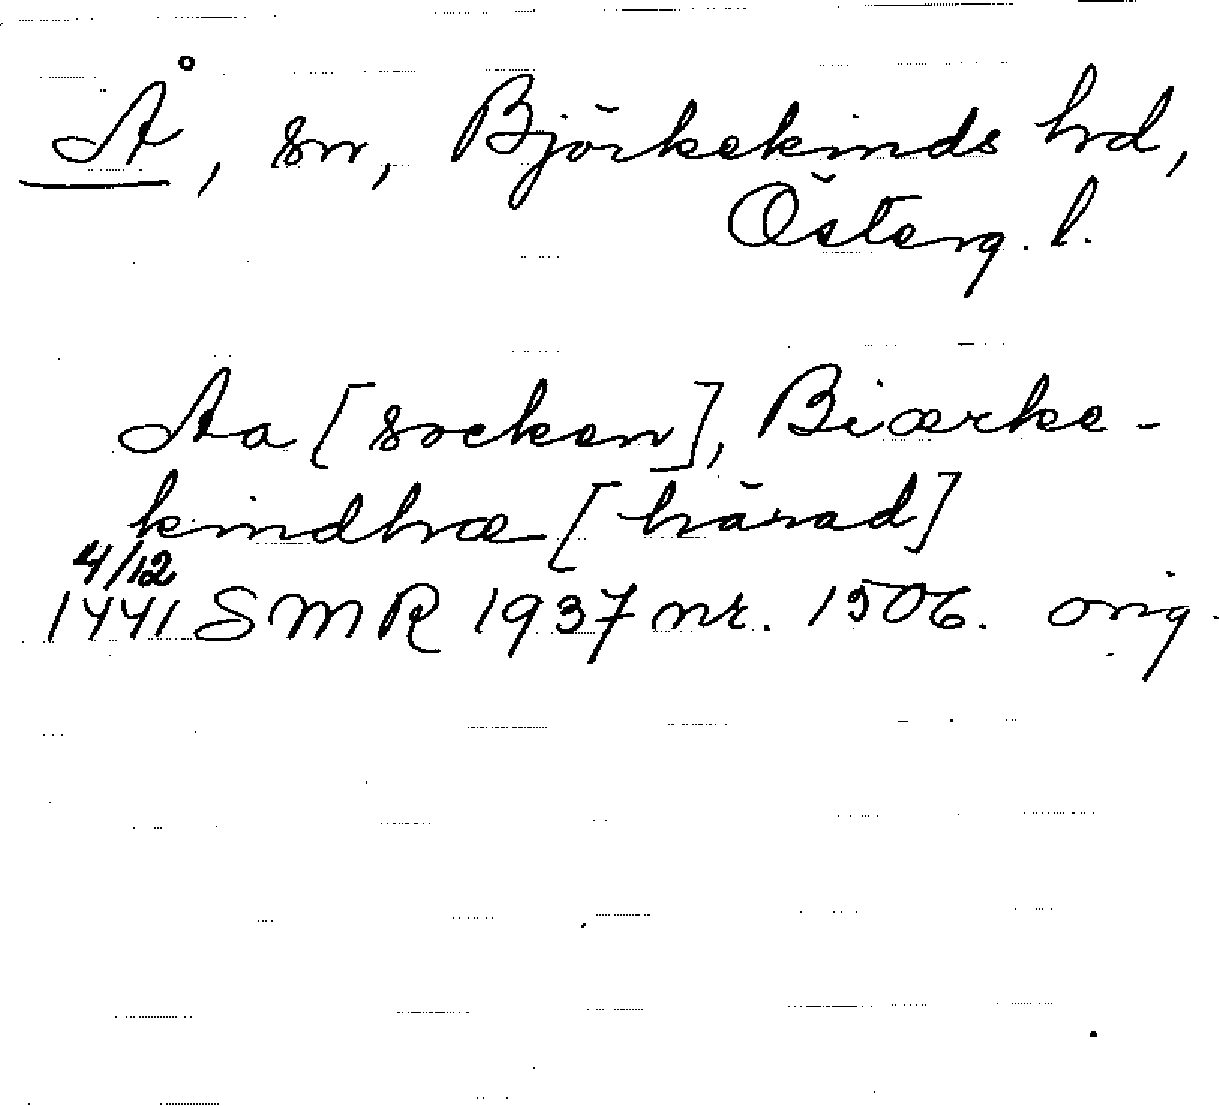 Å, sn, Björkekinds hd,
Österg. l.
Aa [socken], Biærke-
kindhræ [härad]
4/12
1441 SMR 1937 nr. 1506. orig.